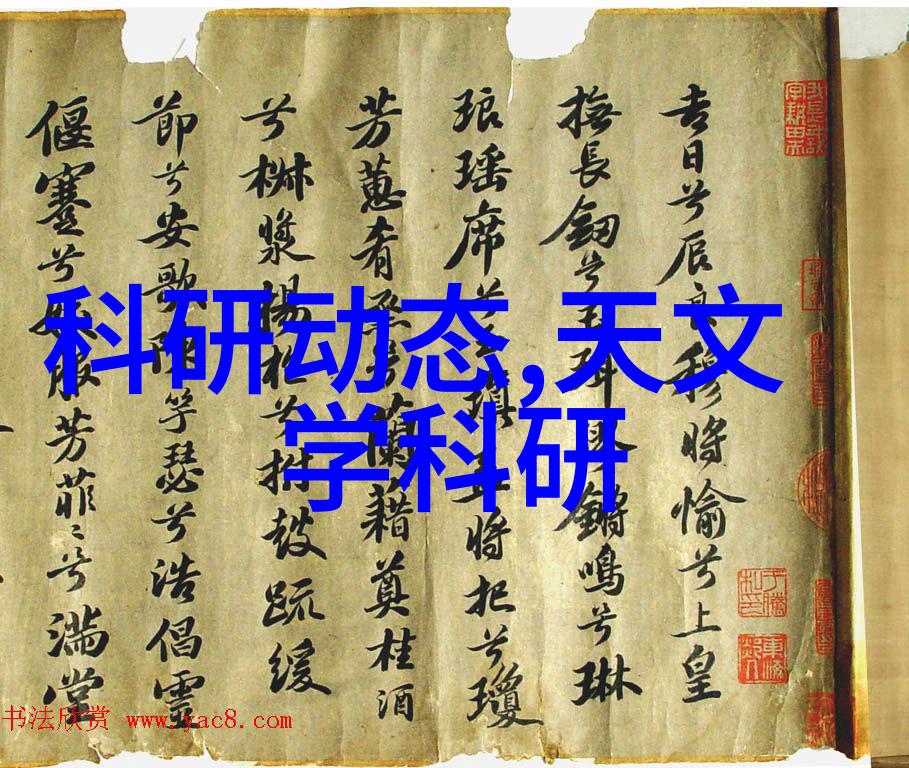 科研动态,天文
学科研
吉日兮辰良穆將愉兮上皇
撫長劔兮玉珥鏘鳴兮琳
琅瑶席兮玉瑱盍將把兮瓊
芳蕙肴蒸兮蘭藉奠桂酒
兮椒漿揚枹兮拊鼓疏緩
節兮安歌陳竽瑟兮浩倡靈
偃蹇兮姣服芳菲〻兮滿堂
书法欣赏 www.yac8.com